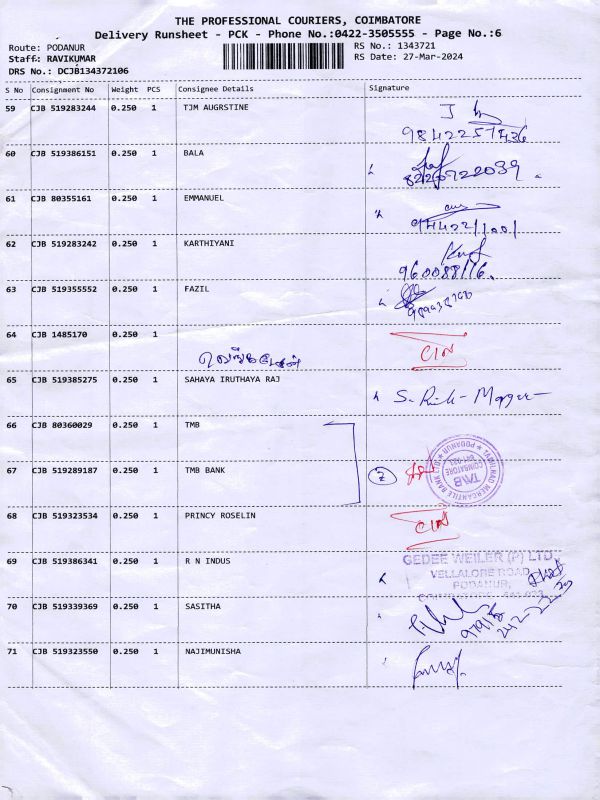 THE PROFESSIONAL COURIERS, COIMBATORE
Delivery Runsheet - PCK - Phone No.:0422-3505555 - Page No.:6
Route: PODANUR
RS No.: 1343721
Staff: RAVIKUMAR
RS Date: 27-Mar-2024
DRS No.: DCJB134372106
S No Consignment No Weight PCS Consignee Details Signature
59 CJB 519283244 0.250 1 TJM AUGRSTINE
9842257436
60 CJB 519386151 0.250 1 BALA
8220722039
61 CJB 80355161 0.250 1 EMMANUEL
9442211001
62 CJB 519283242 0.250 1 KARTHIYANI
960088116.
63 CJB 519355552 0.250 1 FAZIL
64 CJB 1485170 0.250 1
65 CJB 519385275 0.250 1 SAHAYA IRUTHAYA RAJ
66 CJB 80360029 0.250 1 TMB
67 CJB 519289187 0.250 1 TMB BANK
2
TAMILNAD MERCANTILE BANK LTD.
PODANUR
TMB
COIMBATORE
68 CJB 519323534 0.250 1 PRINCY ROSELIN
69 CJB 519386341 0.250 1 R N INDUS
GEDEE WEILER (P) LTD
VELLALORE ROAD,
PODANUR,
70 CJB 519339369 0.250 1 SASITHA
71 CJB 519323550 0.250 1 NAJIMUNISHA